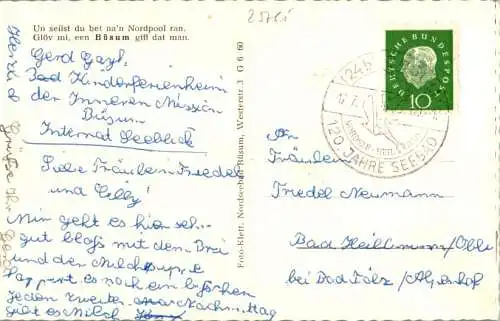 Un seilst du bet na'n Nordpool ran,
Glöv mi, een Büsum giff dat man.
Gerd Gayl.
Bad Kinderferienheim
der Inneren Mission
Büsum
Internat Seeblick
Liebe Fräulein Friedel
und Cilly!
Mir geht es hier sehr
gut bloß mit dem Brei
und der Milchsuppe
happert es noch ein bißchen
jeden zweiten Nachmittag
gibt es Milch
Herzl
Grüße Ihr
Foto-Klett, Nordseebad Büsum, Westerstr. 3 G 6 60
2576i
DEUTSCHE BUNDESPOST
10
(24b)
17.7.
120 JAHRE SEEBAD
An
Fräulein
Friedel Neumann
Bad Heilbrunn/Obb.
bei Bad Tölz/